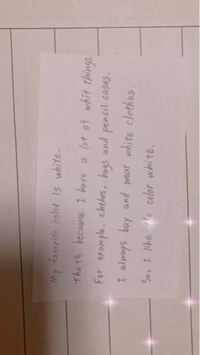 My favorite color is white.
That's because I have a lot of whit things
For example, clothes, bags and pencil cases.
I always buy and wear white clothes.
So, I like to color white.